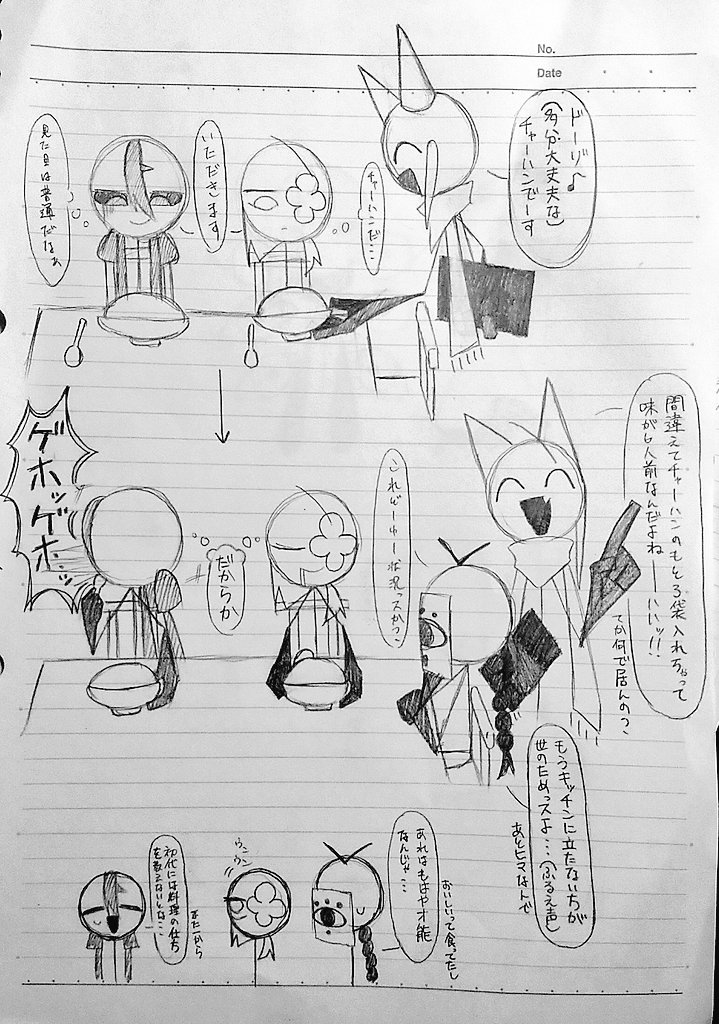 No.
Date
ドーゾ♪
(多分大丈夫な)
チャーハンでーす
チャーハンだ…
いただきます
見た目は普通だなぁ
間違えてチャーハンのもと3袋入れちゃって
味が6人前なんだよねーーハハッ!!
てか何で居んのっ
これどーゆー状況っスかっ
だからか
ゲホッゲホッ
もうキッチンに立たないちが
世のためっスよ…(ふるえ声)
あとヒマなんで
あれはもはや才能
なんじゃ…
おいしいって食ってたし
ウン
ウン
初代には料理の仕方
を教えないとな…